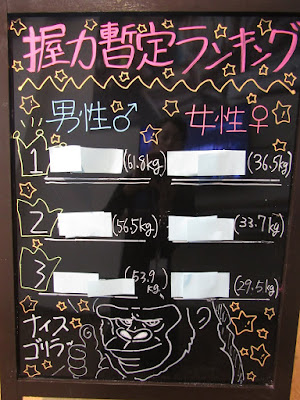 握力暫定ランキング
男性♂ 女性♀
1 (61.8kg) (36.5kg)
2 (56.5kg) (33.7kg)
3 (53.9kg) (29.5kg)
ナイス
ゴリラ